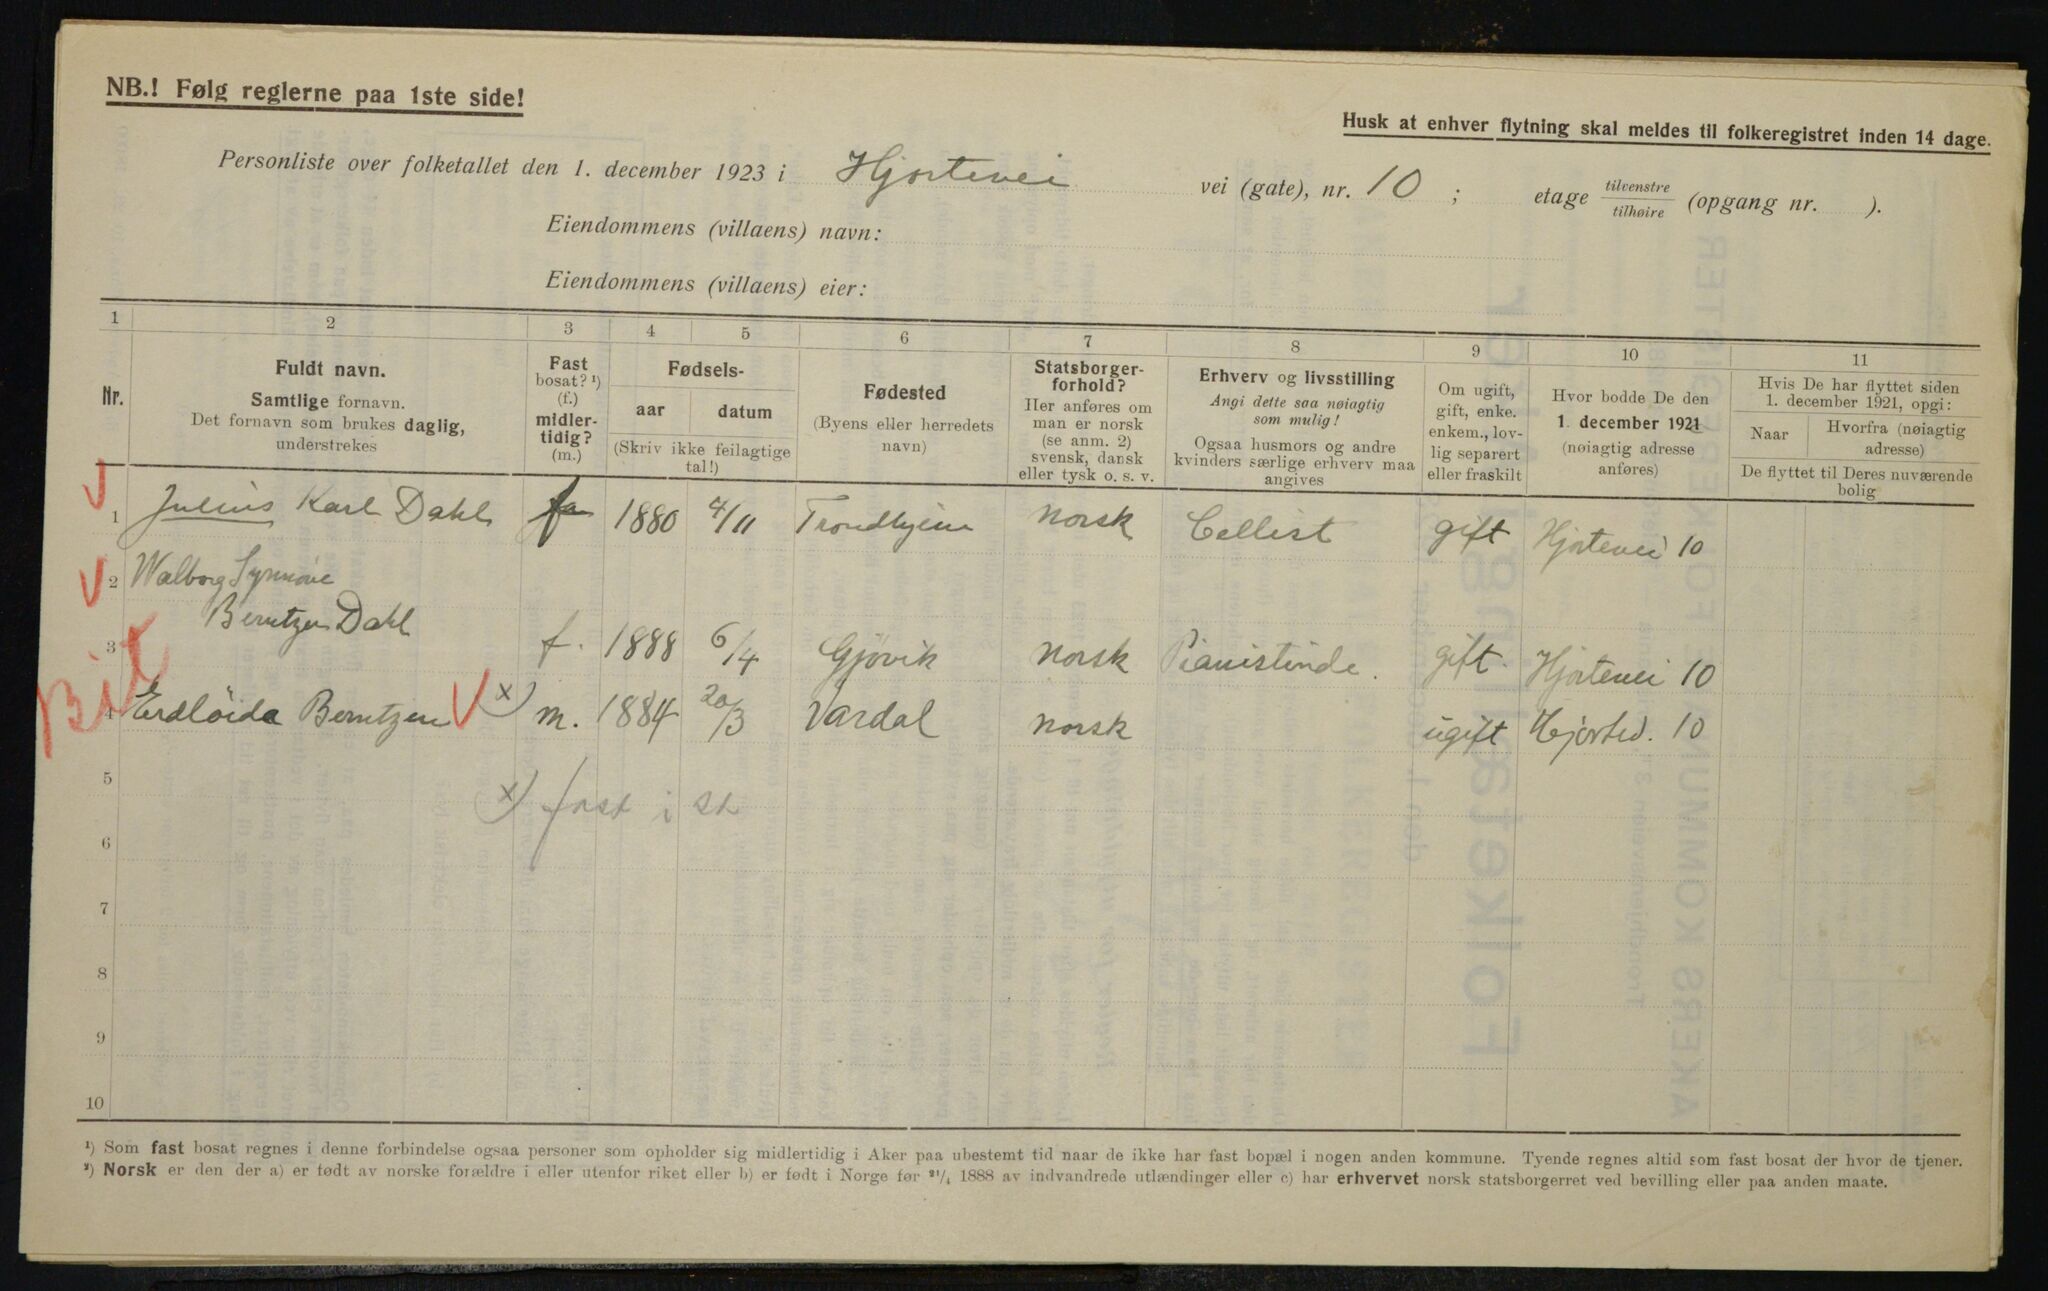 NB.! Følg reglerne paa 1ste side!
Husk at enhver flytning skal meldes til folkeregistret inden 14 dage.
Personliste over folketallet den 1. december 1923 i Hjortevei vei (gate), nr. 10 ; etage tilvenstre/tilhøire (opgang nr. ).
Eiendommens (villaens) navn:
Eiendommens (villaens) eier:
1 2 3 4 5 6 7 8 9 10 11
Nr.
Fuldt navn.
Samtlige fornavn.
Det fornavn som brukes daglig,
understrekes
Fast
bosat? ¹)
(f.)
midler-
tidig?
(m.)
Fødsels-
aar datum
(Skriv ikke feilagtige
tal!)
Fødested
(Byens eller herredets
navn)
Statsborger-
forhold?
Her anføres om
man er norsk
(se anm. 2)
svensk, dansk
eller tysk o. s. v.
Erhverv og livsstilling
Angi dette saa nøiagtig
som mulig!
Ogsaa husmors og andre
kvinders særlige erhverv maa
angives
Om ugift,
gift, enke.
enkem., lov-
lig separert
eller fraskilt
Hvor bodde De den
1. december 1921
(nøiagtig adresse
anføres)
Hvis De har flyttet siden
1. december 1921, opgi:
Naar
Hvorfra (nøiagtig
adresse)
De flyttet til Deres nuværende
bolig
1 Julius Karl Dahl 1880 4/11 Trondhjem norsk Cellist gift Hjortevei 10
2 Walborg Synnøve
Berntzen Dahl
3 f. 1888 6/4 Gjøvik norsk Pianistinde. gift. Hjortevei 10
Bit
4 Erdlöida Berntzen x) m. 1884 20/3 Vardal norsk ugift Hjortev. 10
5
x) fast i sk
6
7
8
9
10
¹) Som fast bosat regnes i denne forbindelse ogsaa personer som opholder sig midlertidig i Aker paa ubestemt tid naar de ikke har fast bopæl i nogen anden kommune. Tyende regnes altid som fast bosat der hvor de tjener.
²) Norsk er den der a) er født av norske forældre i eller utenfor riket eller b) er født i Norge før ²¹/₄ 1888 av indvandrede utlændinger eller c) har erhvervet norsk statsborgerret ved bevilling eller paa anden maate.